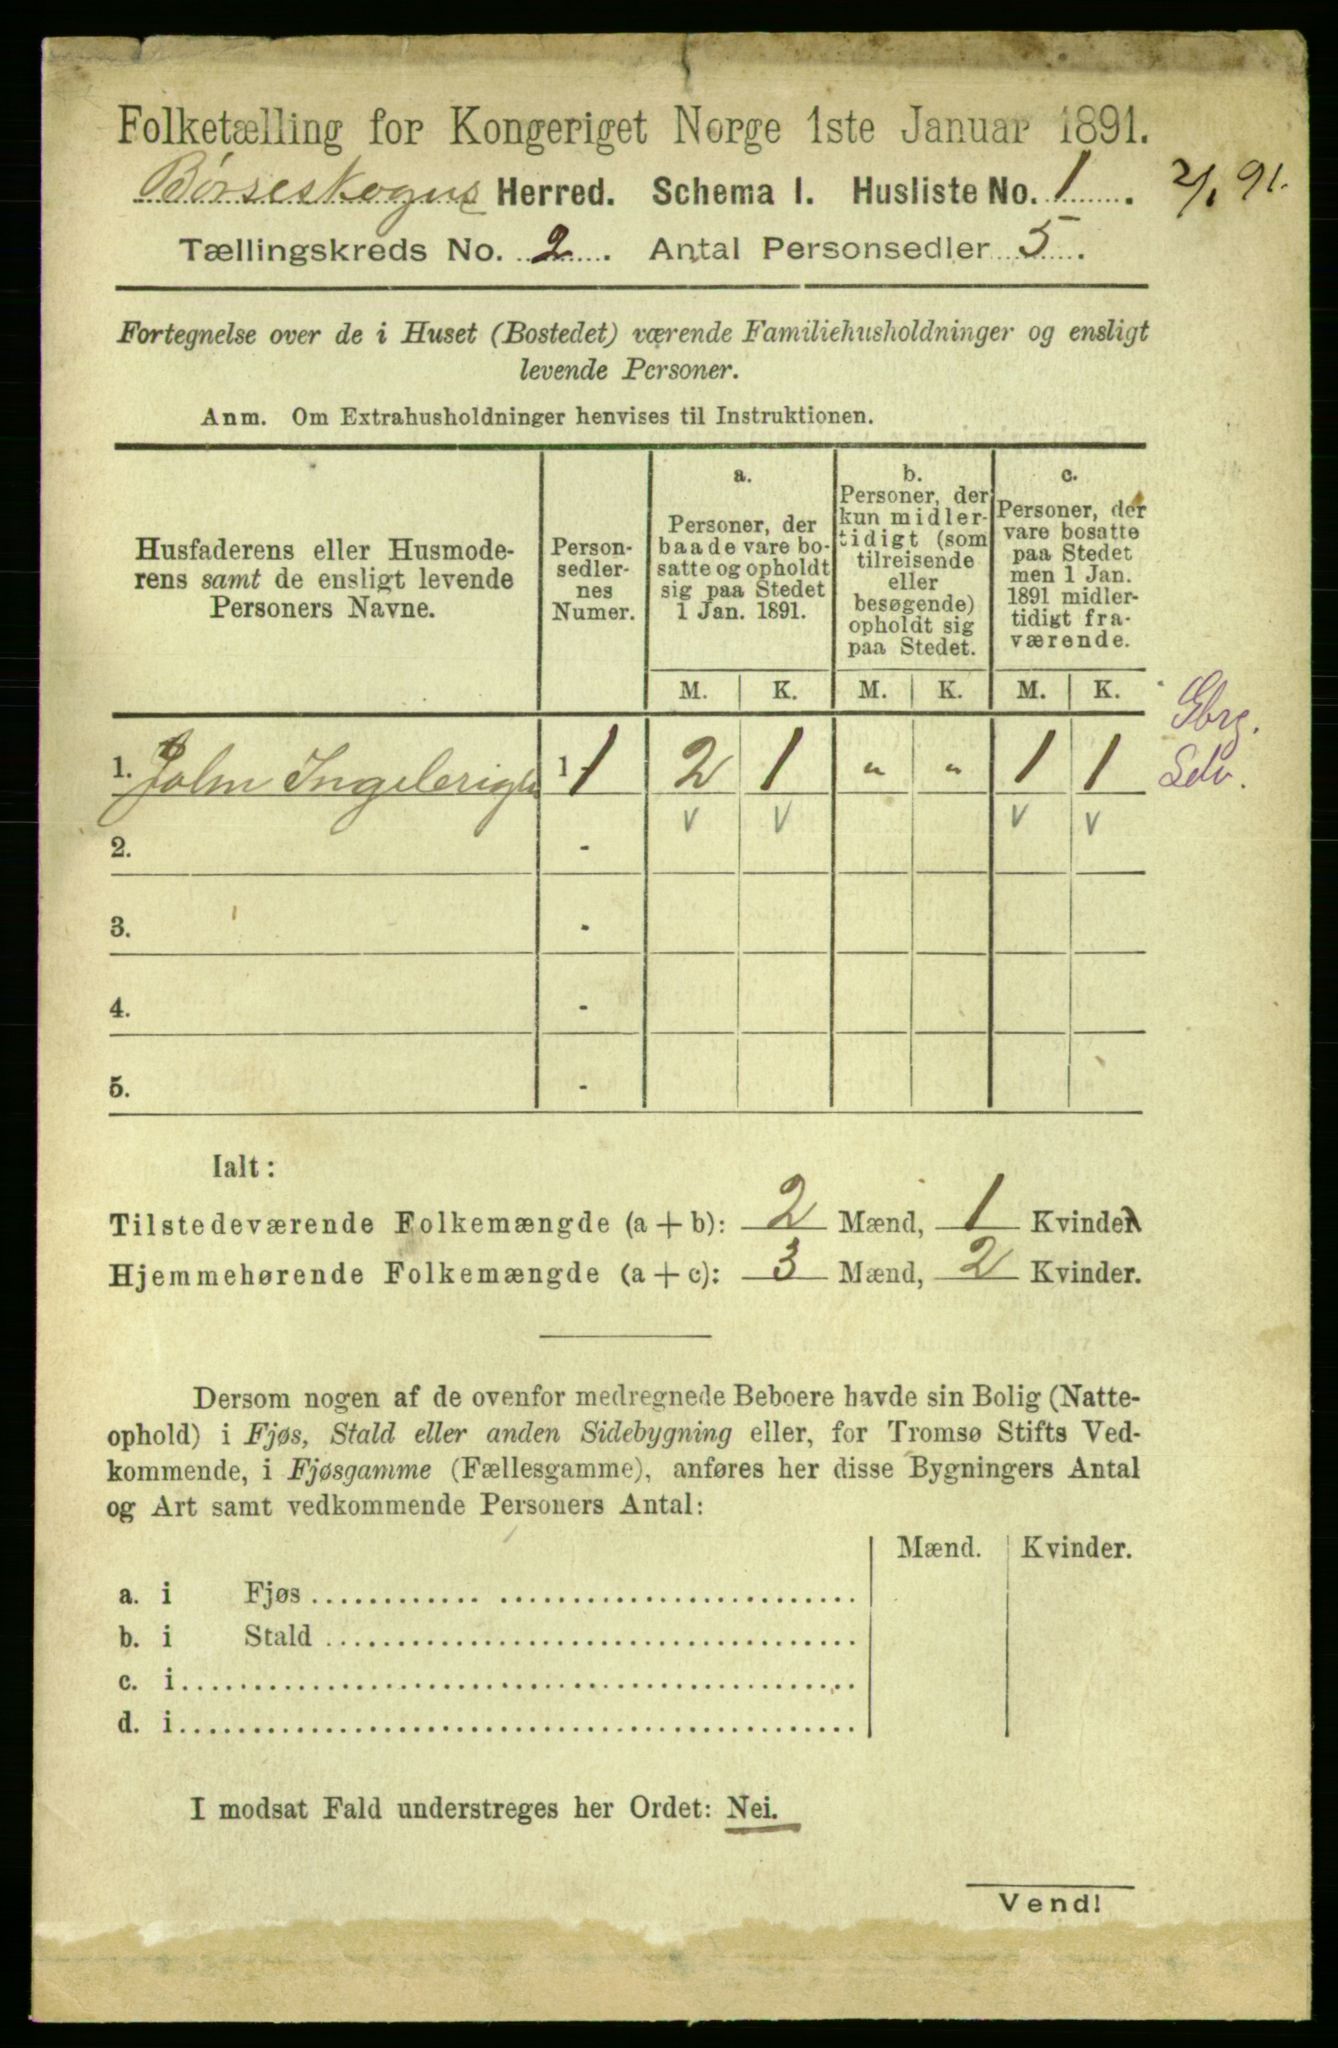 Folketælling for Kongeriget Norge 1ste Januar 1891.
Børseskogns Herred. Schema I. Husliste No. 1. 2/1 91.
Tællingskreds No. 2. Antal Personsedler 5.
Fortegnelse over de i Huset (Bostedet) værende Familiehusholdninger og ensligt
levende Personer.
Anm. Om Extrahusholdninger henvises til Instruktionen.
Husfaderens eller Husmode-
rens samt de ensligt levende
Personers Navne.
Person-
sedler-
nes
Numer.
a.
Personer, der
baade vare bo-
satte og opholdt
sig paa Stedet
1 Jan. 1891.
b.
Personer, der
kun midler-
tidigt (som
tilreisende
eller
besøgende)
opholdt sig
paa Stedet.
c.
Personer, der
vare bosatte
paa Stedet
men 1 Jan.
1891 midler-
tidigt fra-
værende.
M. K. M. K. M. K.
Gbrg.
Selv.
1. John Ingebrigts 1 - 1 2 1 " " 1 1
v v v v
2. -
3. -
4. -
5. -
Ialt:
Tilstedeværende Folkemængde (a + b): 2 Mænd, 1 Kvinder
Hjemmehørende Folkemængde (a + c): 3 Mænd, 2 Kvinder.
Dersom nogen af de ovenfor medregnede Beboere havde sin Bolig (Natte-
ophold) i Fjøs, Stald eller anden Sidebygning eller, for Tromsø Stifts Ved-
kommende, i Fjøsgamme (Fællesgamme), anføres her disse Bygningers Antal
og Art samt vedkommende Personers Antal:
Mænd. Kvinder.
a. i Fjøs
b. i Stald
c. i
d. i
I modsat Fald understreges her Ordet: Nei.
Vend!